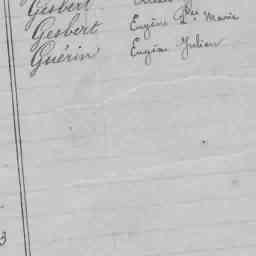 Gesbert
Gesbert Eugène Marie
Guérin Eugène Julien
3